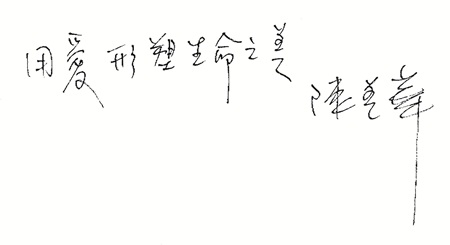 用愛形塑生命之美
陳美華